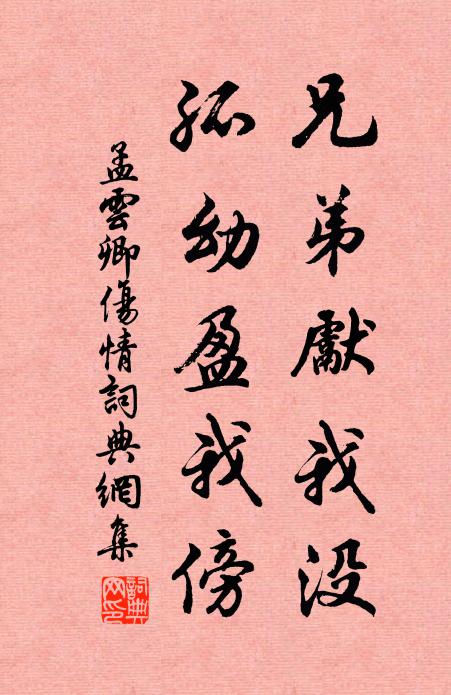 兄弟獻我没
孤幼盈我傍
孟雲卿傷情詞典網集
詞典
网印